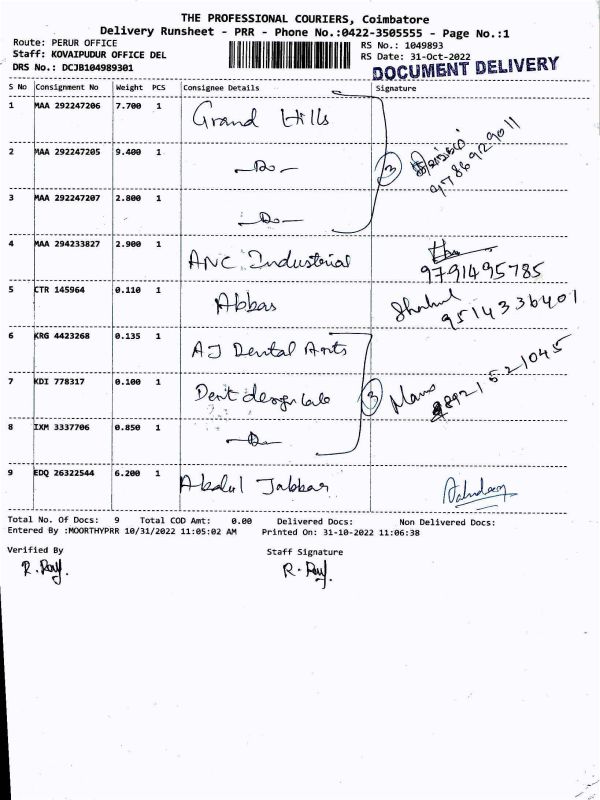 THE PROFESSIONAL COURIERS, Coimbatore
Delivery Runsheet - PRR - Phone No.:0422-3505555 - Page No.:1
Route: PERUR OFFICE RS No.: 1049893
Staff: KOVAIPUDUR OFFICE DEL RS Date: 31-Oct-2022
DRS No.: DCJB104989301 DOCUMENT DELIVERY
S No Consignment No Weight PCS Consignee Details Signature
1 MAA 292247206 7.700 1 Grand Hills
2 MAA 292247205 9.400 1 -Do- 3 9786929011
3 MAA 292247207 2.800 1 -Do-
4 MAA 294233827 2.900 1 ANC Industrial
9791495785
5 CTR 145964 0.110 1 Abbas 9514336401
6 KRG 4423268 0.135 1 AJ Dental Arts
7 KDI 778317 0.100 1 Dent design 3 8921521045
8 IXM 3337706 0.850 1 -Do-
9 EDQ 26322544 6.200 1 Abdul Jabbar
Total No. Of Docs: 9 Total COD Amt: 0.00 Delivered Docs: Non Delivered Docs:
Entered By :MOORTHYPRR 10/31/2022 11:05:02 AM Printed On: 31-10-2022 11:06:38
Verified By Staff Signature